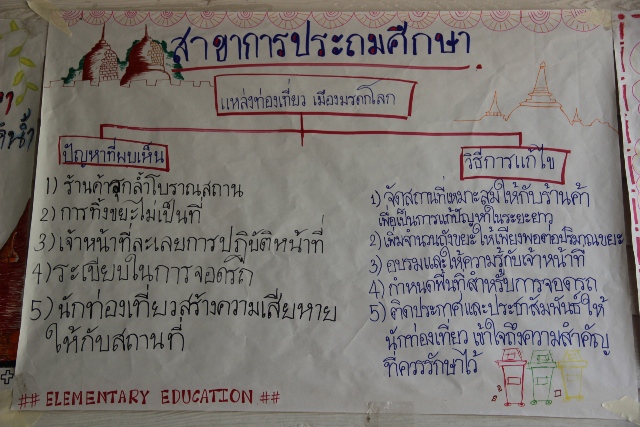 สาขาการประถมศึกษา
แหล่งท่องเที่ยว เมืองมรดกโลก
ปัญหาที่พบเห็น
1) ร้านค้ารุกล้ำโบราณสถาน
2) การทิ้งขยะไม่เป็นที่
3) เจ้าหน้าที่ละเลยการปฏิบัติหน้าที่
4) ระเบียบในการจอดรถ
5) นักท่องเที่ยวสร้างความเสียหาย
ให้กับสถานที่
วิธีการแก้ไข
1) จัดสถานที่เหมาะสมให้กับร้านค้า
เพื่อเป็นการแก้ปัญหาในระยะยาว
2) เพิ่มจำนวนถังขยะให้เพียงพอต่อปริมาณขยะ
3) อบรมและให้ความรู้กับเจ้าหน้าที่
4) กำหนดพื้นที่สำหรับการจอดรถ
5) ติดประกาศและประชาสัมพันธ์ให้
นักท่องเที่ยว เข้าใจถึงความสำคัญ
ที่ควรรักษาไว้
## ELEMENTARY EDUCATION ##